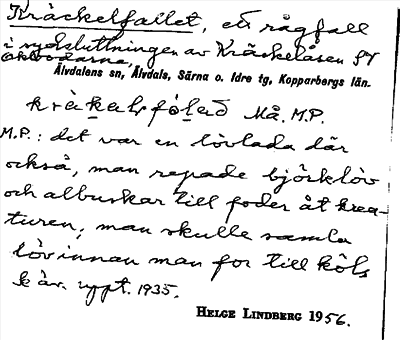 Kräckelfallet, ett vägfall
i sydsluttningen av Kräckelåsen SV
Åkbodarna,
Älvdalens sn, Älvdals, Särna o. Idre tg, Kopparbergs län.
Må. M.P.
M.P.: det var en lövlada där
också, man repade björklöv
och albuskar till foder åt krea-
turen; man skulle samla
löv innan man for till köls
k är. uppt. 1935.
HELGE LINDBERG 1956.